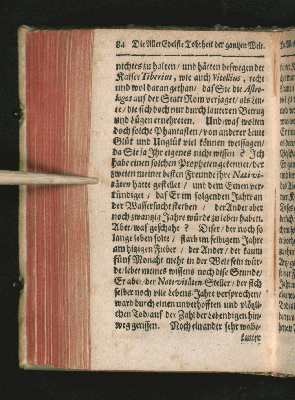 84 Die Aller Edelste Tohrheit der gantzen Welt.
nichtes zu halten / und hätten deswegen der
Kaiser Tiberius, wie auch Vitellius, recht
und wol daran gethan / daß Sie die Astro-
logos aus der Statt Rom verjaget / als Leu-
te / die sich doch nur durch lauteren Betrug
und Lügen ernehreten. Und was wolten
doch solche Phantasten / von anderer Leute
Glük und Unglük viel können weissagen /
da Sie ja Ihr eigenes nicht wissen? Ich
habe einen solchen Propheten gekennet / der
zweien meiner besten Freunde ihre Nativi-
täten hatte gestellet / und dem Einen ver-
kündiget / das Er im folgenden Jahre an
der Wassersucht sterben / der Ander aber
noch zwanzig Jahre würde zu leben haben.
Aber / was geschahe? Diser / der noch so
lange leben solte / starb im selbigem Jahre
am hitzigen Fieber / der Ander / der kaum
fünf Monaht mehr in der Welt sein wür-
de / lebet meines wissens noch dise Stunde /
Er aber / der Nativitäten Steller / der sich
selber noch viele Lebens-Jahre versprochen /
ward durch einen unverhofften und plötzli-
chen Tod / aus der Zahl der Lebendigen hin-
weg gerissen. Noch ein ander sehr wolbe-